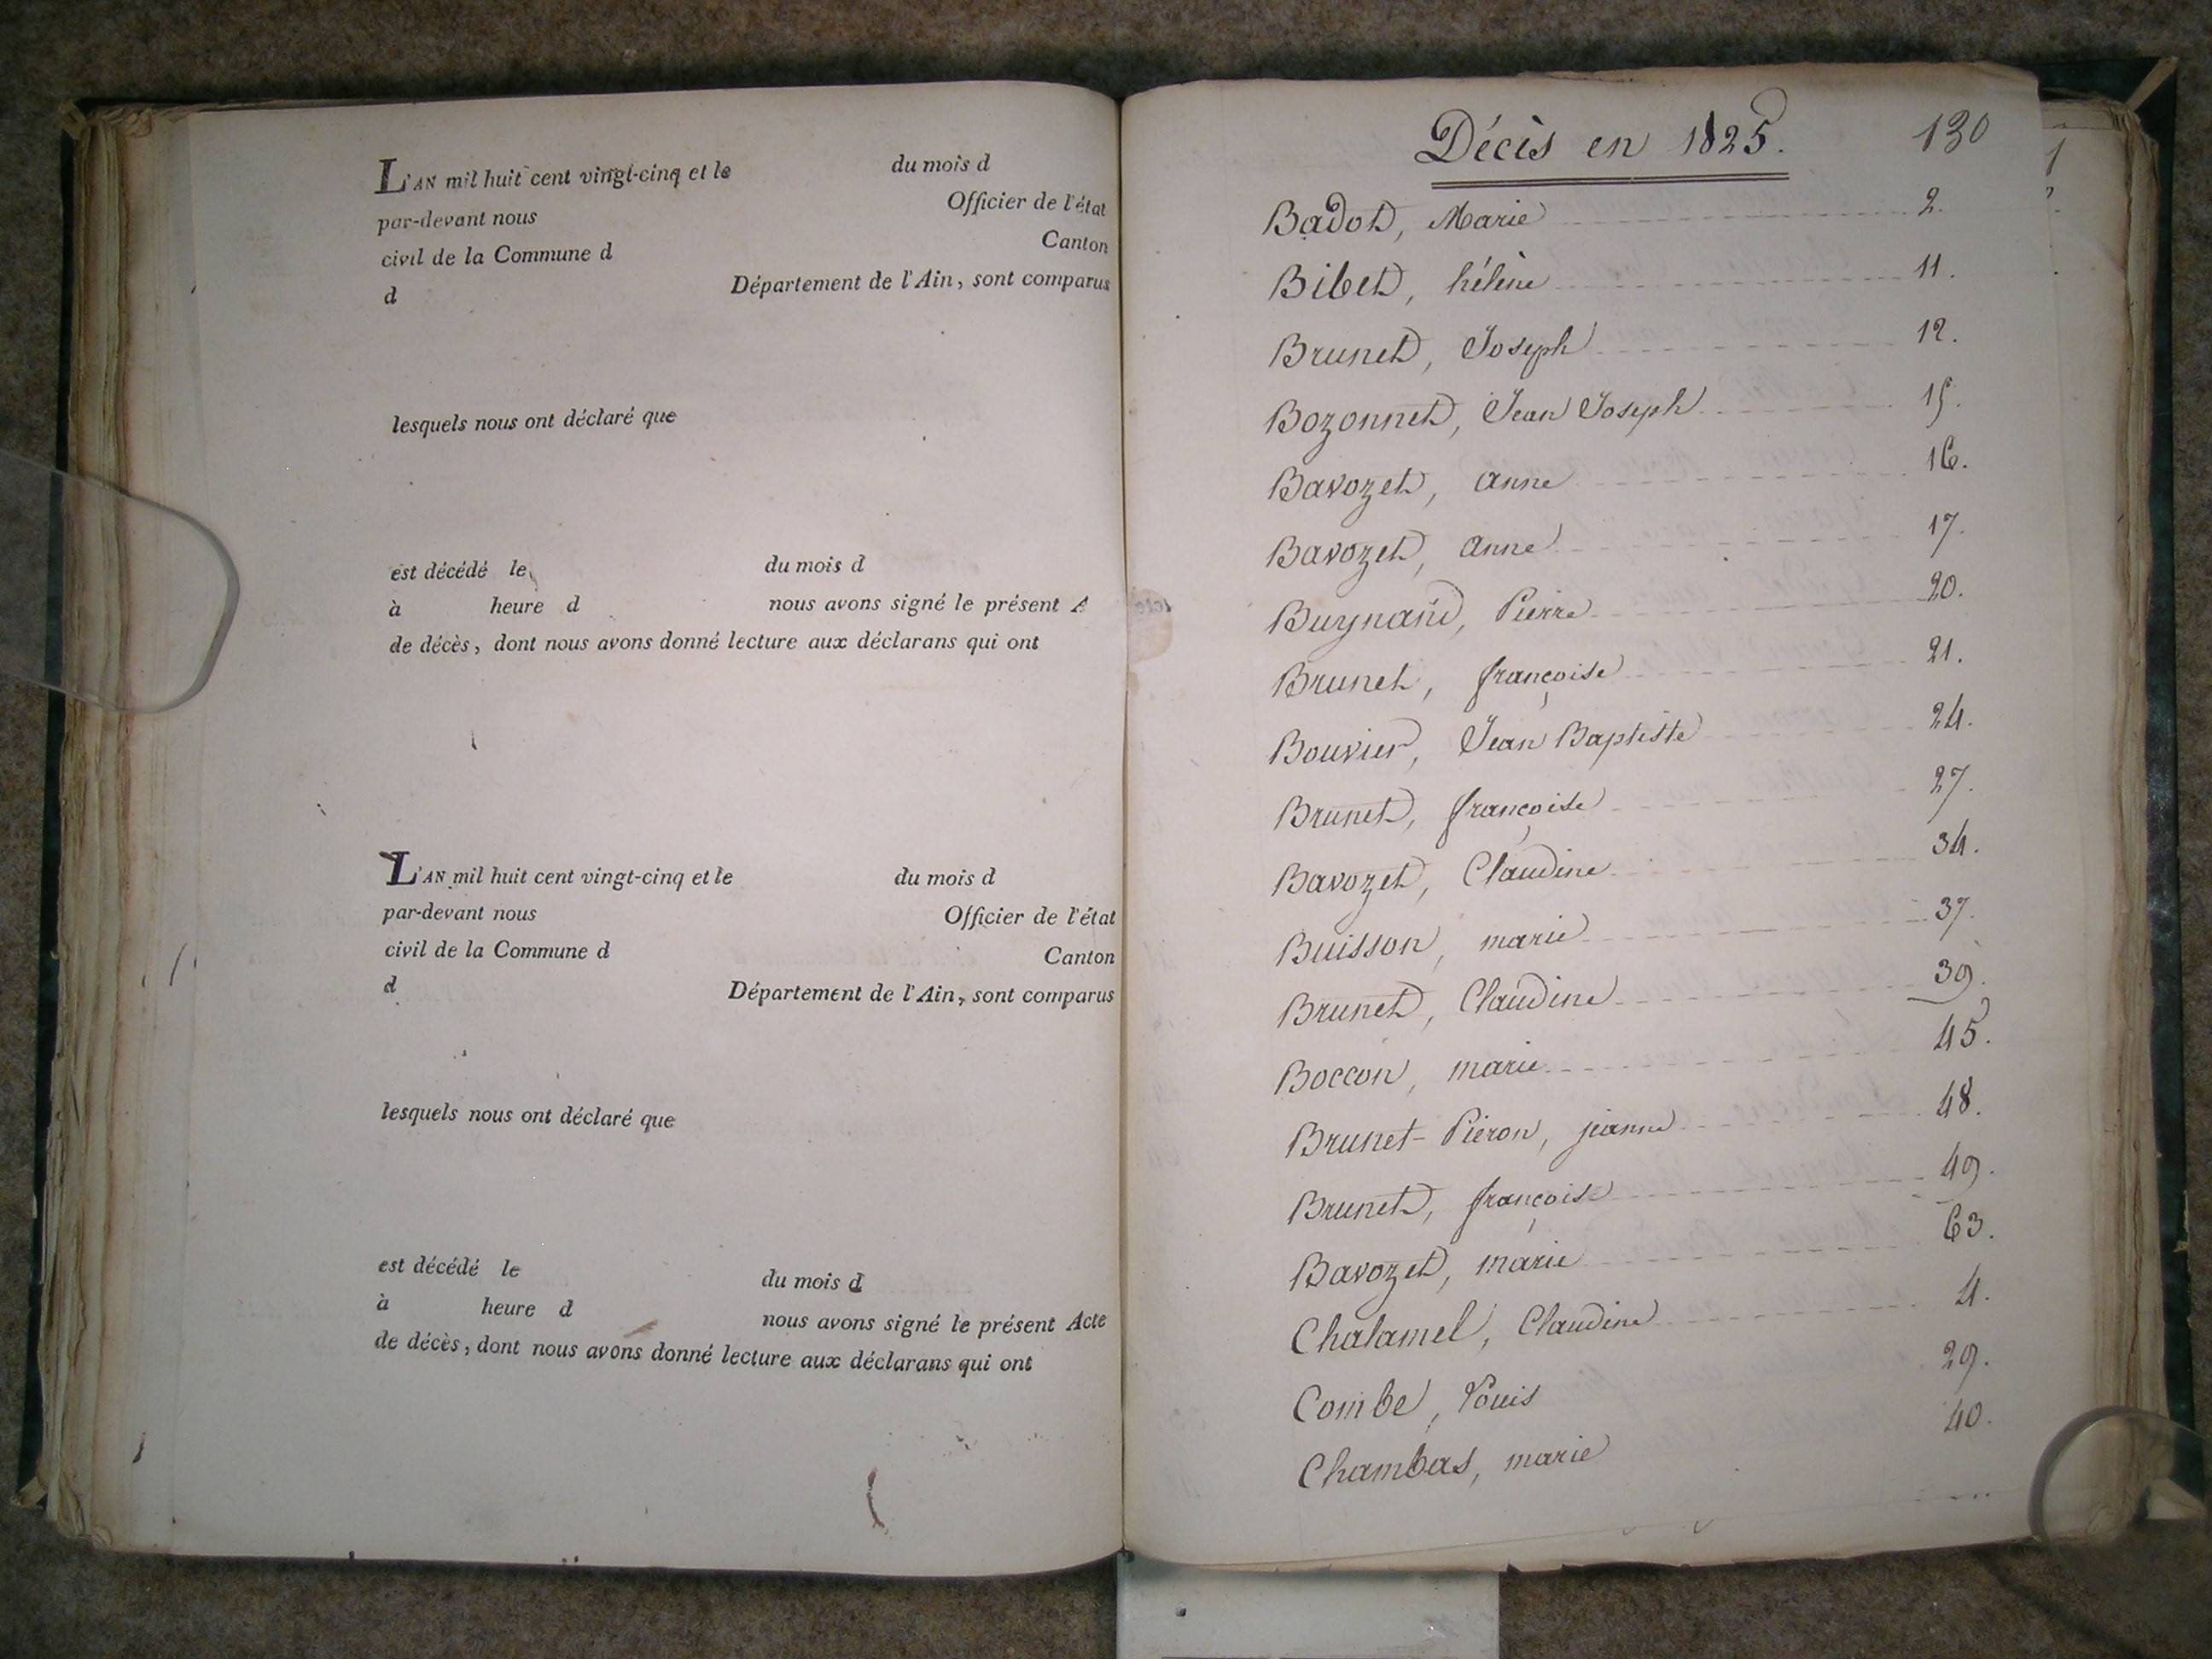 L'AN mil huit cent vingt-cinq et le du mois d
par-devant nous Officier de l'état
civil de la Commune d Canton
d Département de l'Ain, sont comparus
lesquels nous ont déclaré que
est décédé le du mois d
à heure d nous avons signé le présent A
de décès, dont nous avons donné lecture aux déclarans qui ont
L'AN mil huit cent vingt-cinq et le du mois d
par-devant nous Officier de l'état
civil de la Commune d Canton
d Département de l'Ain, sont comparus
lesquels nous ont déclaré que
est décédé le du mois d
à heure d nous avons signé le présent Acte
de décès, dont nous avons donné lecture aux déclarans qui ont
Décès en 1825. 130
Badot, Marie 2.
Bibet, hélène 11.
Brunet, Joseph 12.
Bozonnet, Jean Joseph 15.
Bavozet, anne 16.
Bavozet, anne 17.
Buynand, Pierre 20.
Brunet, françoise 21.
Bouvier, Jean Baptiste 24.
Brunet, françoise 27.
Bavozet, Claudine 34.
Buisson, marie 37.
Brunet, Claudine 39.
Boccon, marie 45.
Brunet-Pieron, jeanne 48.
Brunet, françoise 49.
Bavozet, marie 63.
Chalamel, Claudine 4.
Combe, Louis 29.
Chambas, marie 40.